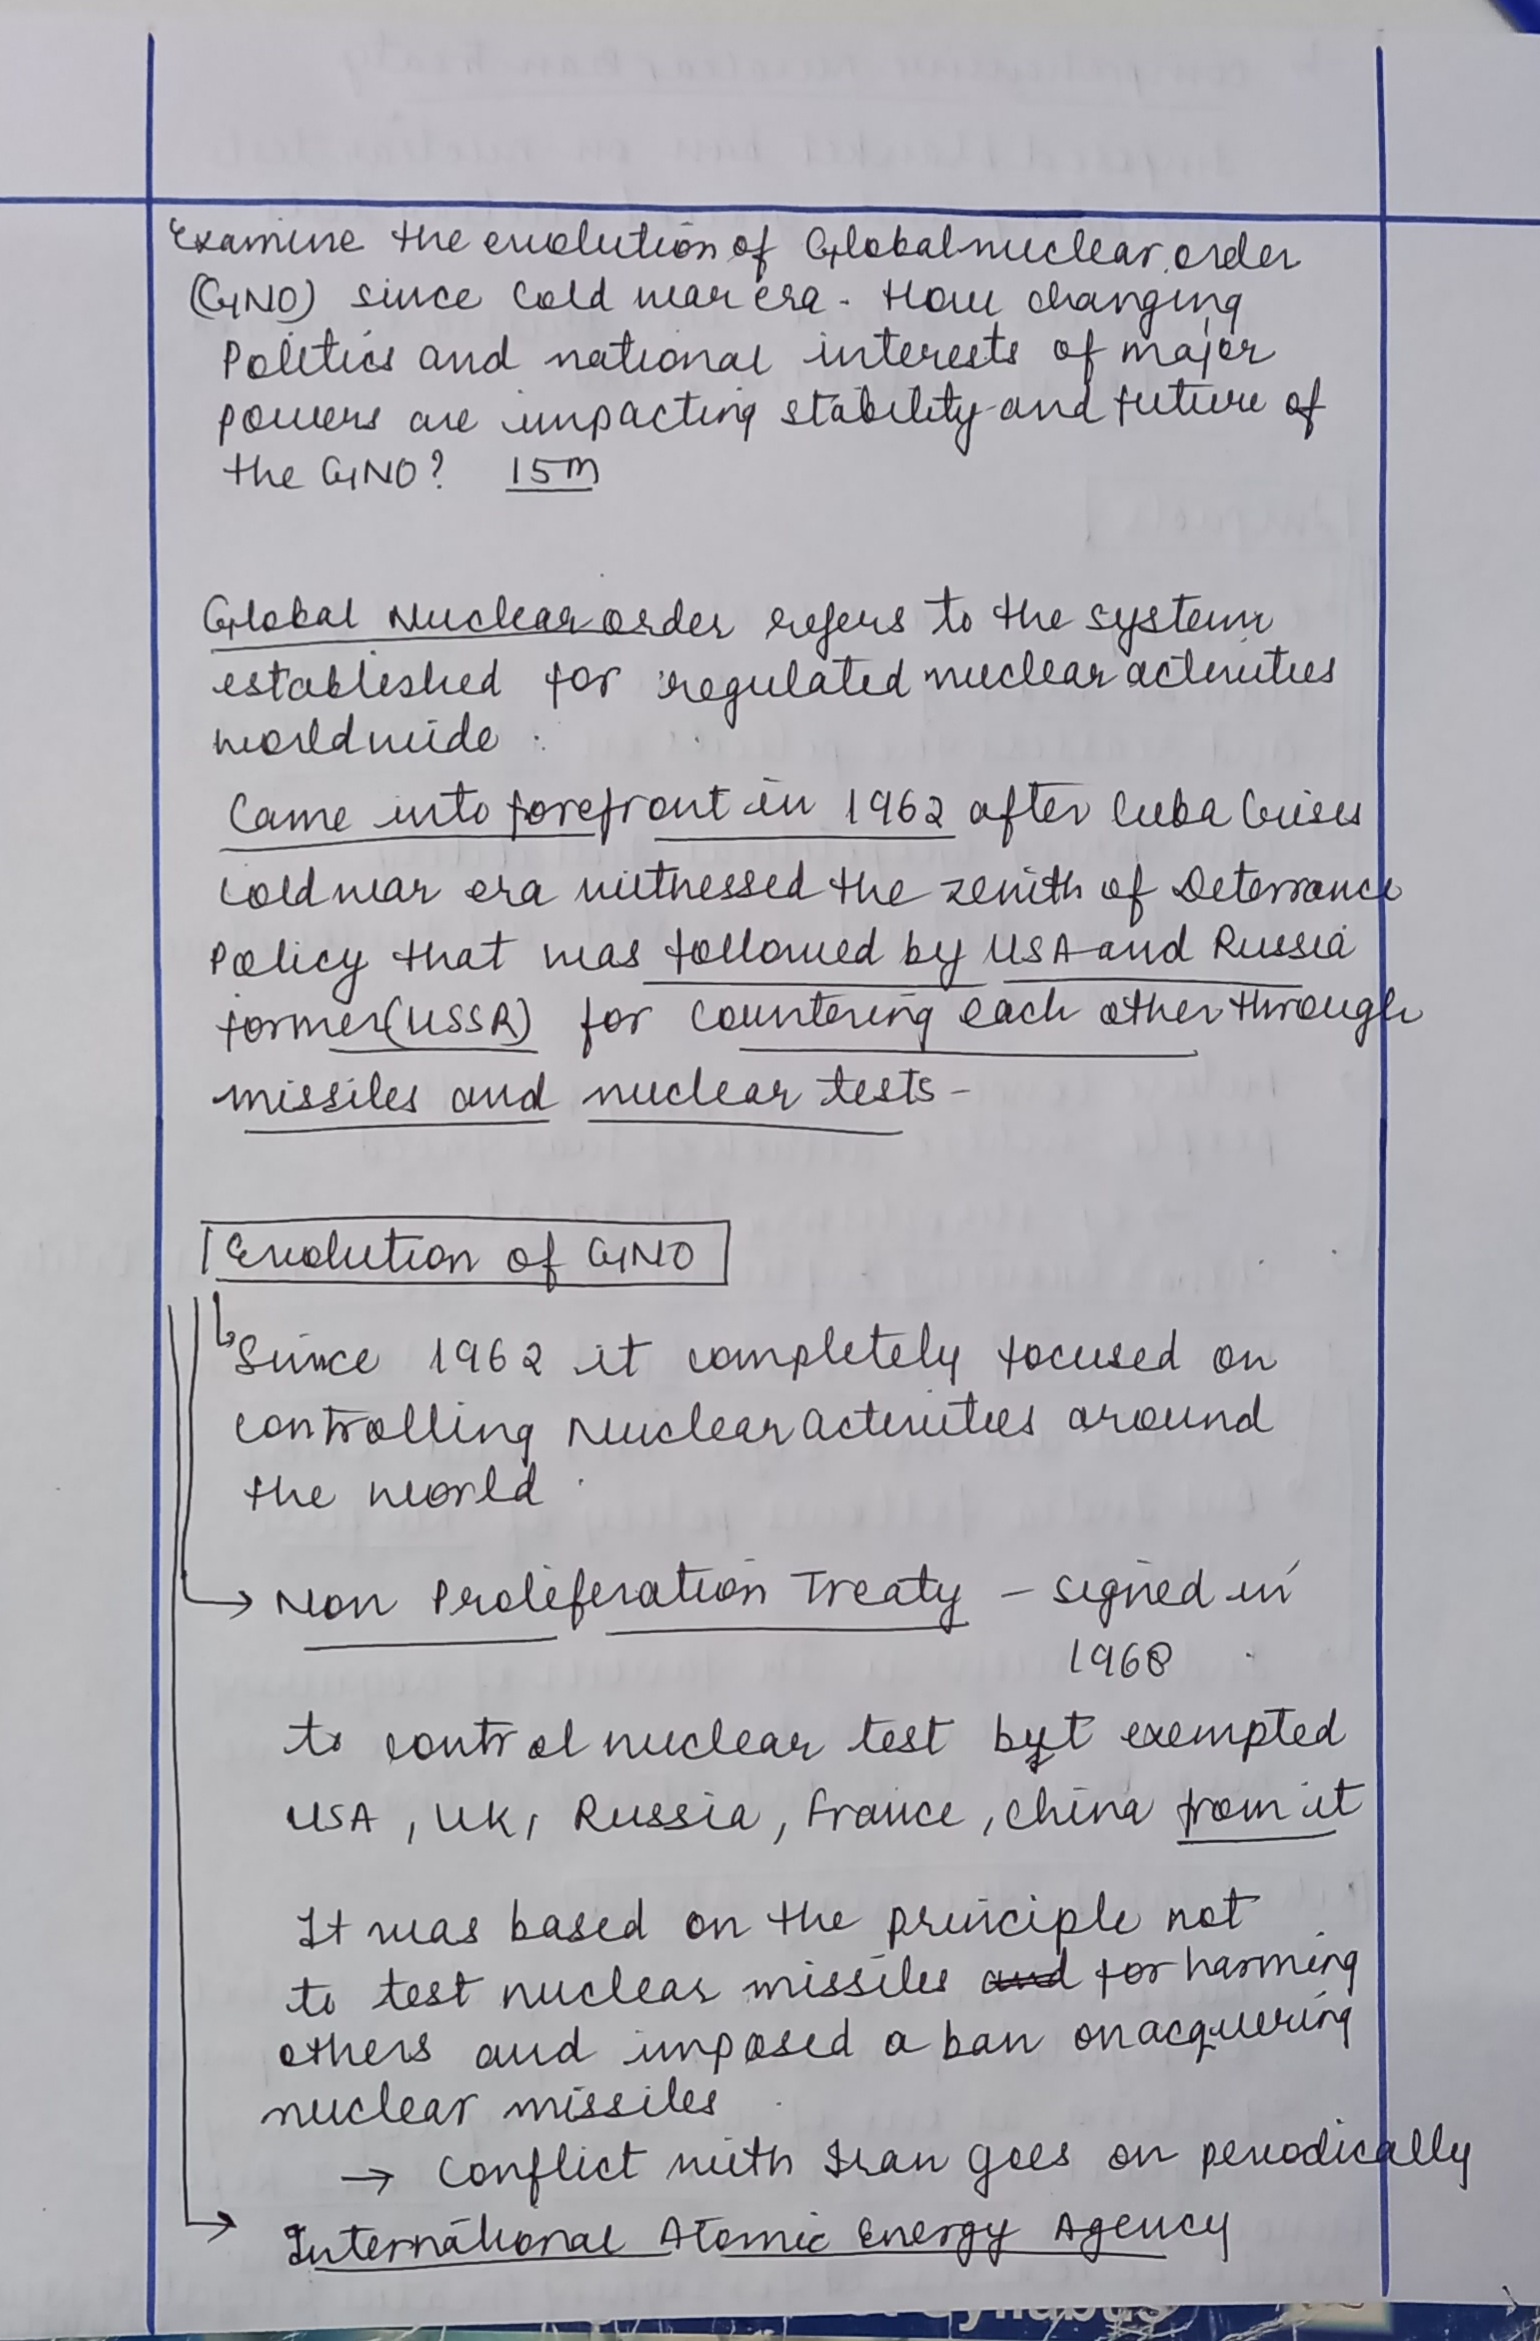 Examine the evolution of Global nuclear order
(GNO) since Cold war era. How changing
Politics and national interests of major
powers are impacting stability and future of
the GNO? 15m
Global Nuclear order refers to the system
established for regulated nuclear activities
worldwide.
Came into forefront in 1962 after Cuba Crises
Cold war era witnessed the zenith of Deterrance
Policy that was followed by USA and Russia
former(USSR) for countering each other through
missiles and nuclear tests-
Evolution of GNO
Since 1962 it completely focused on
controlling Nuclear activities around
the world.
→ Non Proliferation Treaty - signed in
1968
to control nuclear test byt exempted
USA, UK, Russia, France, China from it
It was based on the principle not
to test nuclear missiles and for harming
others and imposed a ban on acquering
nuclear missiles
→ Conflict with Iran goes on periodically
→ International Atomic Energy Agency